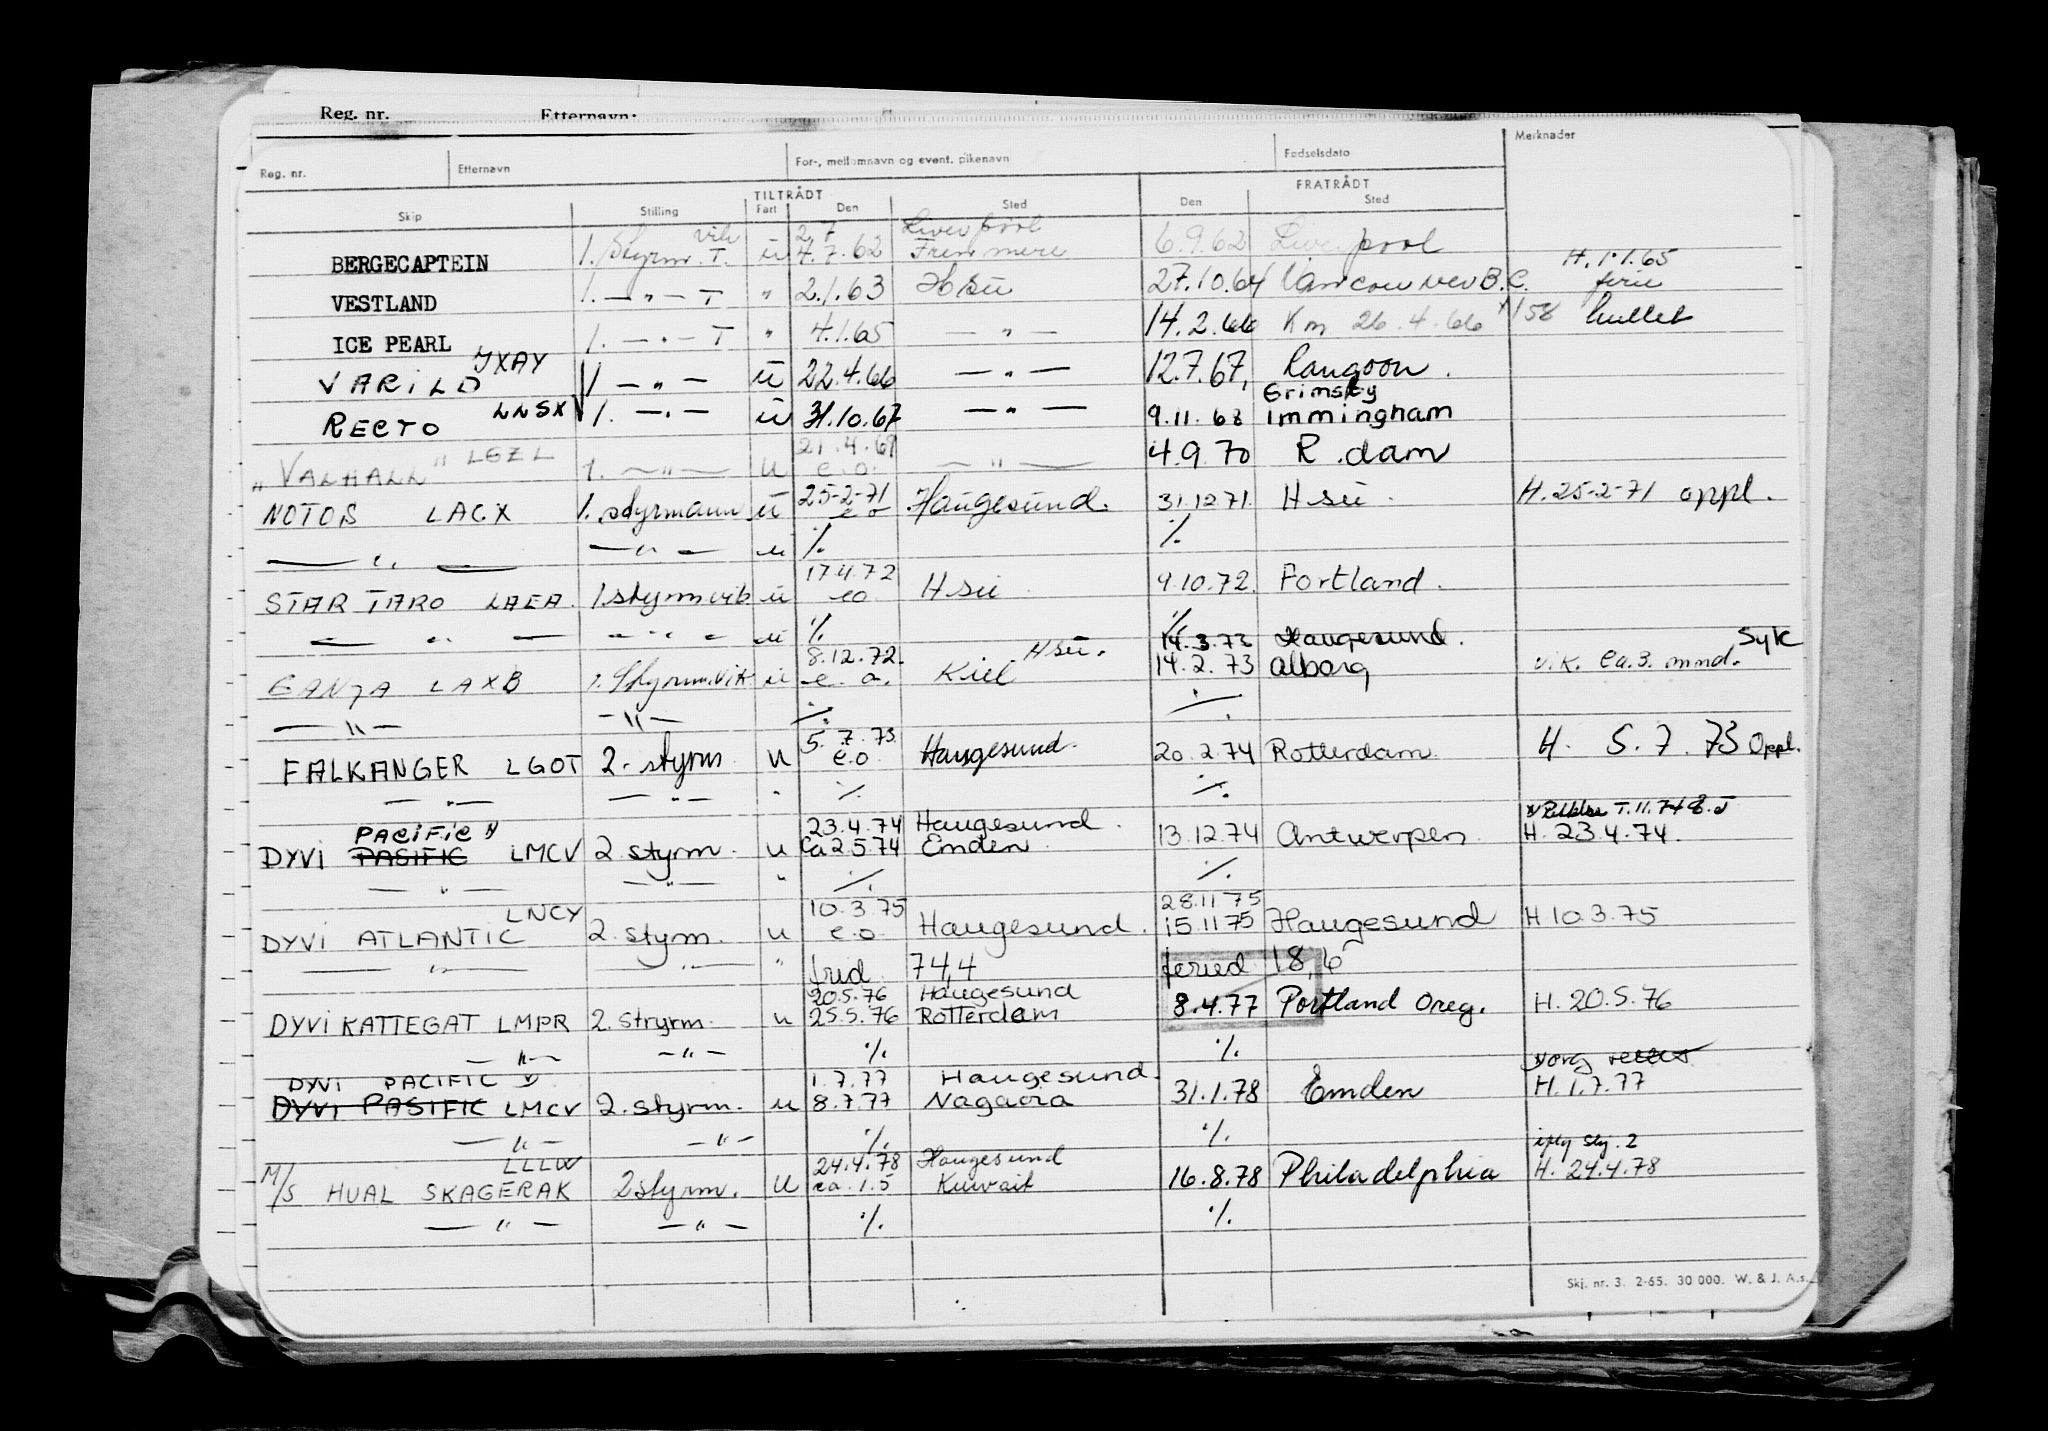 Reg. nr. Etternavn:
Reg. nr. Etternavn For-, mellomnavn og event. pikenavn Fødselsdato Merknader
TILTRÅDT FRATRÅDT
Skip Stilling Fart Den Sted Den Sted
vik 2.7 Liverpool
BERGECAPTEIN 1. Styrm. T. u 4.7.62 6.9.62 Liverpool
H. 1.1.65
VESTLAND 1. — " — T " 2.1.63 Hsu 27.10.64 Vancouver B.C. ferie
ICE PEARL 1. — " — T " 4.1.65 — " — 14.2.66 Km 26.4.66 158
VARILD JXAY — " — u 22.4.66 — " — 12.7.67, Rangoon.
Grimsby
RECTO LNSX 1. — " — u 31.10.67 — " — 9.11.68 Immingham
21.4.69
"VALHALL" LGZL 1. — " — u e.o. — " — 4.9.70 R.dam
25-2-71
NOTOS LACX 1. styrmann u e o Haugesund. 31.12.71. Hsu. H. 25-2-71 oppl.
— " — — " — u ./. ./.
17.4.72
STAR TARO LAEA. 1.styrm vik u eo Hsu 9.10.72. Portland.
— " — — " — u ./. ./.
8.12.72. Hsu. 14.3.73 Haugesund. Syk
GANJA LAXB 1. Styrm. vik u e.o. Kiel 14.2.73 Alborg vik. ca. 3. mnd.
— " — — " — ./. ./.
5.7.73.
FALKANGER LGOT 2. styrm u e.o. Haugesund. 20.2.74 Rotterdam. H. 5.7.73 Oppl.
— " — — " — " ./. ./.
PACIFIC 23.4.74 Haugesund. T.11.74
DYVI PASIFIC LMCV 2 styrm. u ca 2.5.74 Emden. 13.12.74 Antwerpen. H. 23.4.74.
— " — — " — " ./. ./.
LNCY 10.3.75 28.11.75
DYVI ATLANTIC 2. styrm. u e.o. Haugesund. 15.11.75 Haugesund H 10.3.75
— " — — " — " frid 74,4 feried 18,6
20.5.76 Haugesund
DYVI KATTEGAT LMPR 2. stryrm. u 25.5.76 Rotterdam 8.4.77 Portland Oreg. H. 20.5.76
— " — — " — ./. ./.
DYVI PACIFIC 1.7.77 Haugesund.
DYVI PASIFIC LMCV 2. styrm. u 8.7.77 Nagaoia 31.1.78 Emden H. 1.7.77
— " — — " — ./. ./.
LLLW 24.4.78 Haugesund
M/S HUAL SKAGERAK 2styrm. u ca. 1.5 Kuwait 16.8.78 Philadelphia H. 24.4.78
— " — — " — ./. ./.
Skj. nr. 3. 2-65. 30 000. W. & J. A.s.